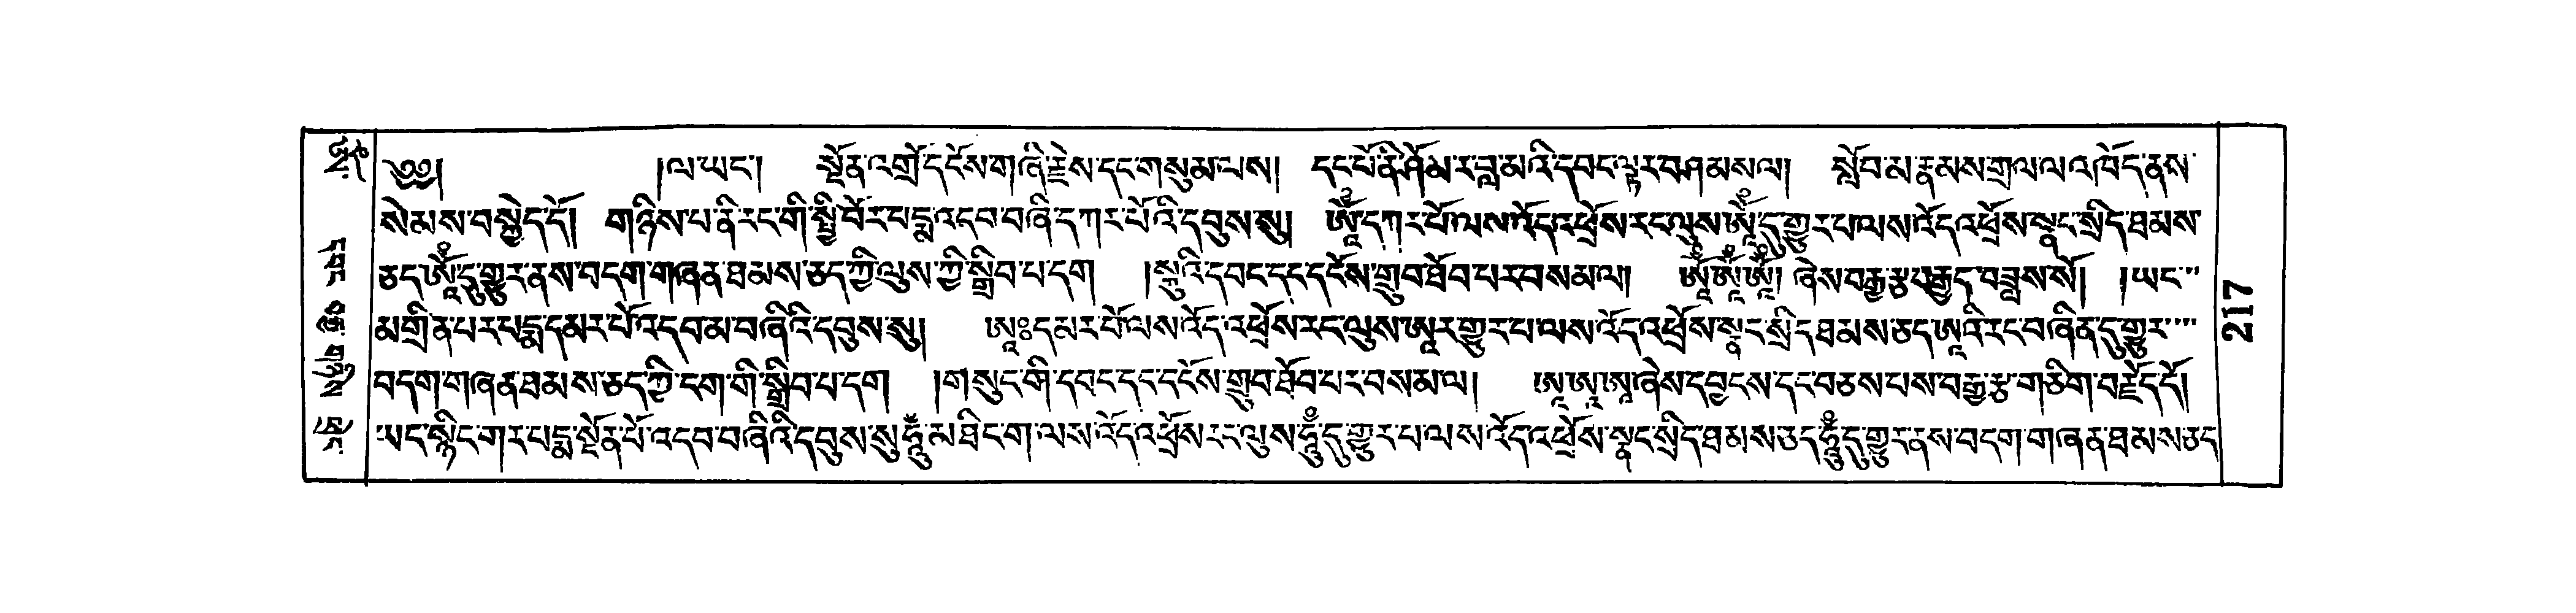 ༄༅། །ལ་ཡང་། སྔོན་འགྲོ་དངོས་གཞི་རྗེས་དང་གསུམ་ལས། དང་པོ་ནི་ཤོམ་ར་བླ་མའི་དབང་ལྟར་བཤམས་ལ། སློབ་མ་རྣམས་གྲལ་ལ་འཁོད་ནས་
སེམས་བསྐྱེད་དོ། གཉིས་པ་ནི་རང་གི་སྤྱི་བོར་པདྨ་འདབ་བཞི་དཀར་པོའི་དབུས་སུ། ཨོཾ་དཀར་པོ་ལས་འོད་འཕྲོས་རང་ལུས་ཨོཾ་དུ་གྱུར་པ་ལས་འོད་འཕྲོས་སྣང་སྲིད་ཐམས་
ཅད་ཨོཾ་དུ་གྱུར་ནས་བདག་གཞན་ཐམས་ཅད་ཀྱི་ལུས་ཀྱི་སྒྲིབ་པ་དག །སྐུའི་དབང་དང་དངོས་གྲུབ་ཐོབ་པར་བསམ་ལ། ཨོཾ་ཨོཾ་ཨོཾ། ཞེས་བརྒྱ་རྩ་བརྒྱད་བཟླས་སོ། །ཡང་
མགྲིན་པར་པདྨ་དམར་པོ་འདབ་མ་བཞིའི་དབུས་སུ། ཨཱཿ་དམར་པོ་ལས་འོད་འཕྲོས་རང་ལུས་ཨཱར་གྱུར་པ་ལས་འོད་འཕྲོས་སྣང་སྲིད་ཐམས་ཅད་ཨཱའི་རང་བཞིན་དུ་གྱུར་
བདག་གཞན་ཐམས་ཅད་ཀྱི་ངག་གི་སྒྲིབ་པ་དག །གསུང་གི་དབང་དང་དངོས་གྲུབ་ཐོབ་པར་བསམ་ལ། ཨཱ་ཨཱ་ཨཱ་ཞེས་དབྱངས་དང་བཅས་པས་བརྒྱ་རྩ་གཅིག་བརྗོད་དོ།
ཡང་སྙིང་གར་པདྨ་སྔོན་པོ་འདབ་བཞིའི་དབུས་སུ་ཧཱུྃ་མཐིང་ག་ལས་འོད་འཕྲོས་རང་ལུས་ཧཱུྃ་དུ་གྱུར་པ་ལས་འོད་འཕྲོས་སྣང་སྲིད་ཐམས་ཅད་ཧཱུྃ་དུ་གྱུར་ནས་བདག་གཞན་ཐམས་ཅད